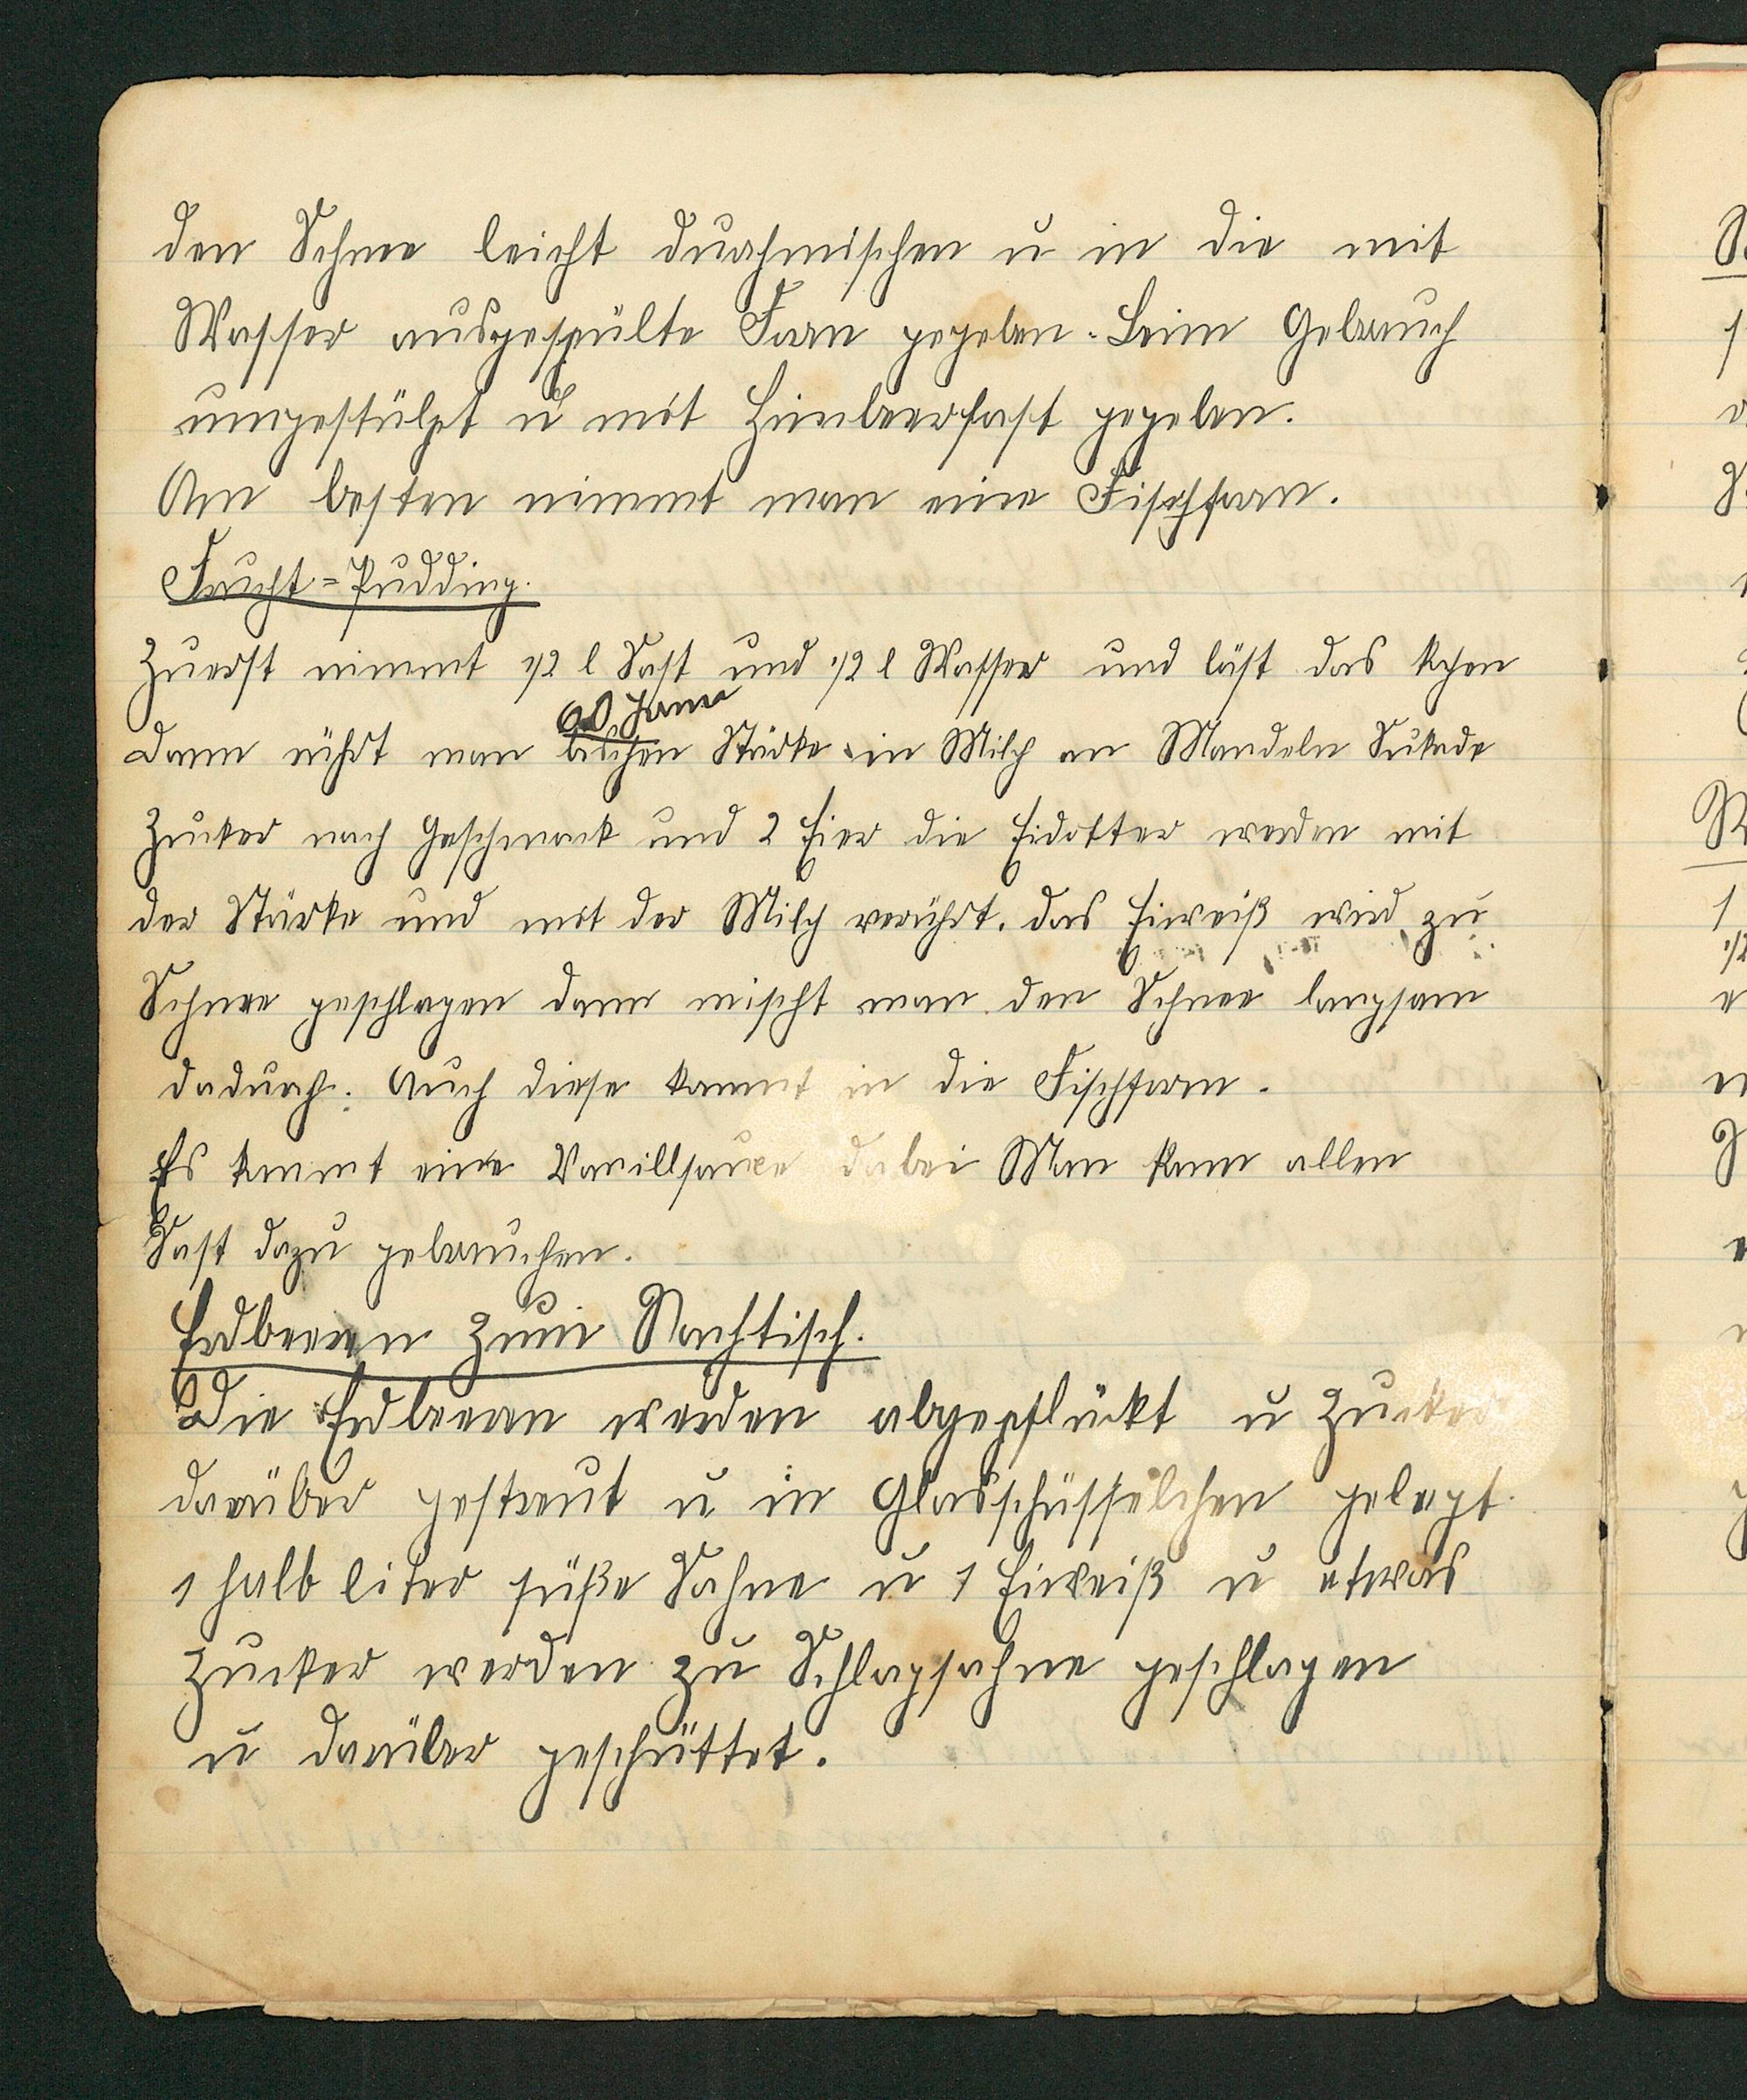 den Schnee leicht durchmischen u in die mit
Wasser ausgespülte Form gegeben. Beim Gebrauch
umgestülpt u mit Himbeersaft gegeben.
Am besten nimmt man eine Fischform.
Frucht=Pudding.
Zuerst nimmt 1/2 l Saft und 1/2 l Wasser und läst das kochen
60 gram
Dann rührt man bischen Stärke in Milch an Mandeln Sukade
Zucker nach Geschmack und 2 Eier die Eidotter werden mit
der Stärke und mit der Milch verührt. das Eiweiß wird zu
Schnee geschlagen dann mischt man den Schnee langsam
dadurch. Auch diese kommt in die Fischform.
Es kommt eine Vanillsauce dabei Man kann allen
Saft dazu gebrauchen.
Erdbeeren zum Nachtisch.
Die Erdbeeren werden abgepflückt u Zucker
darüber gestreut u in Glasschüsselchen gelegt.
1 halb liter süße Sahne u 1 Eiweiß u etwas
Zucker werden zu Schlagsahne geschlagen
u darüber geschüttet.